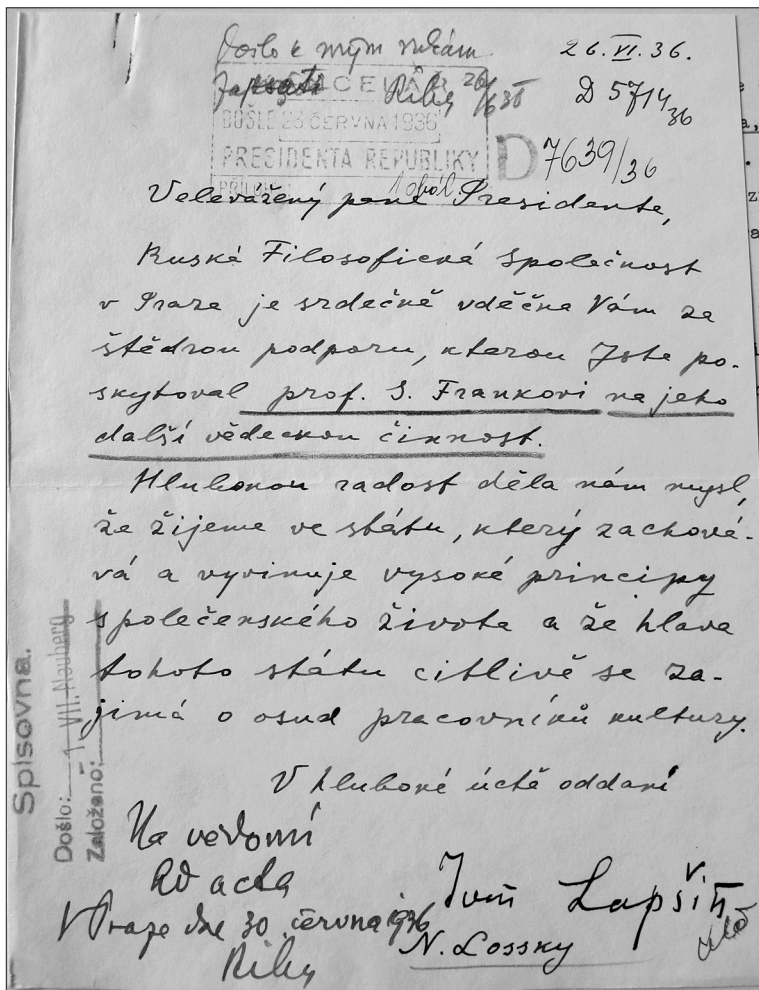 Došlo k mým rukám
26.VI.36.
KANCELÁŘ
26/6 36
Říha
D 5714/36
DOŠLE 23 ČERVNA 1936
PRESIDENTA REPUBLIKY
D 7639/36
PŘÍLOH: 1 obál.
Velevážený pane Presidente,
Ruská Filosofická Společnost
v Praze je srdečně vděčna Vám za
štědrou podporu, kterou Jste po-
skytoval prof. S. Frankovi na jeho
další vědeckou činnost.
Hlubokou radost děla nám mysl,
že žijeme ve státu, který zachová-
vá a vyvinuje vysoké principy
společenského života a že hlava
tohoto státu citlivě se za-
jimá o osud pracovníků kultury.
V hluboké úctě oddaní
Spisovna.
Došlo: 1 VII.
Založeno:
Na vědomí
Ad acta
V Praze dne 30. června 1936
Ivan Lapšin
N. Lossky
Říha